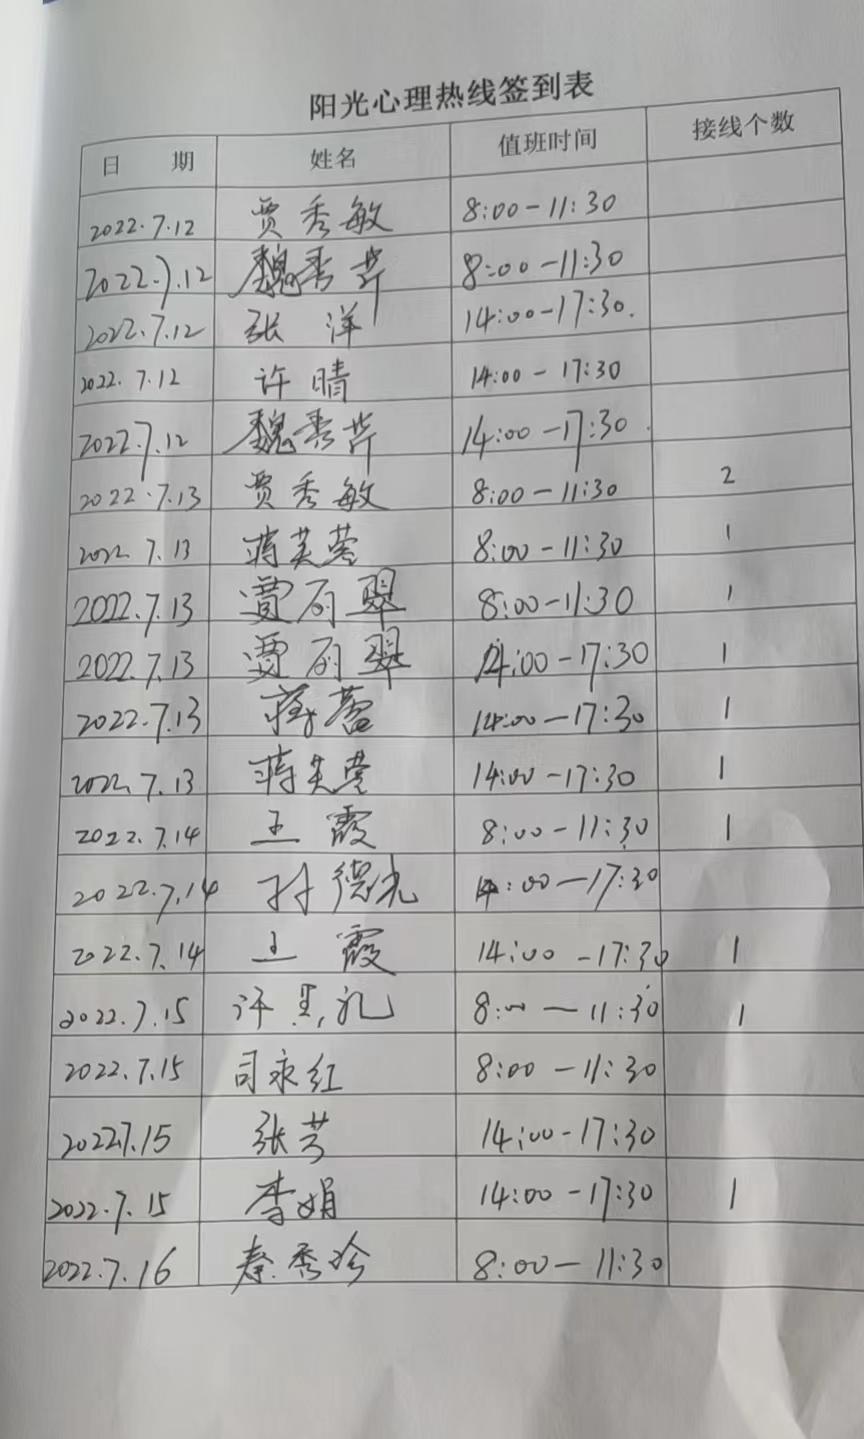 阳光心理热线签到表
日 期 姓名 值班时间 接线个数
2022.7.12 贾秀敏 8:00-11:30
2022.7.12 魏秀芹 8:00-11:30
2022.7.12 张洋 14:00-17:30.
2022.7.12 许晴 14:00-17:30
2022.7.12 魏秀芹 14:00-17:30.
2022.7.13 贾秀敏 8:00-11:30 2
2022.7.13 蒋芙蓉 8:00-11:30 1
2022.7.13 贾 翠 8:00-11:30 1
2022.7.13 贾 翠 14:00-17:30 1
2022.7.13 蒋蕾 14:00-17:30 1
2022.7.13 蒋芙蓉 14:00-17:30 1
2022.7.14 王霞 8:00-11:30 1
2022.7.14 孙德光 14:00-17:30
2022.7.14 王霞 14:00-17:30 1
2022.7.15 许 礼 8:00-11:30 1
2022.7.15 司永红 8:00-11:30
2022.7.15 张芳 14:00-17:30
2022.7.15 李娟 14:00-17:30 1
2022.7.16 秦秀珍 8:00-11:30